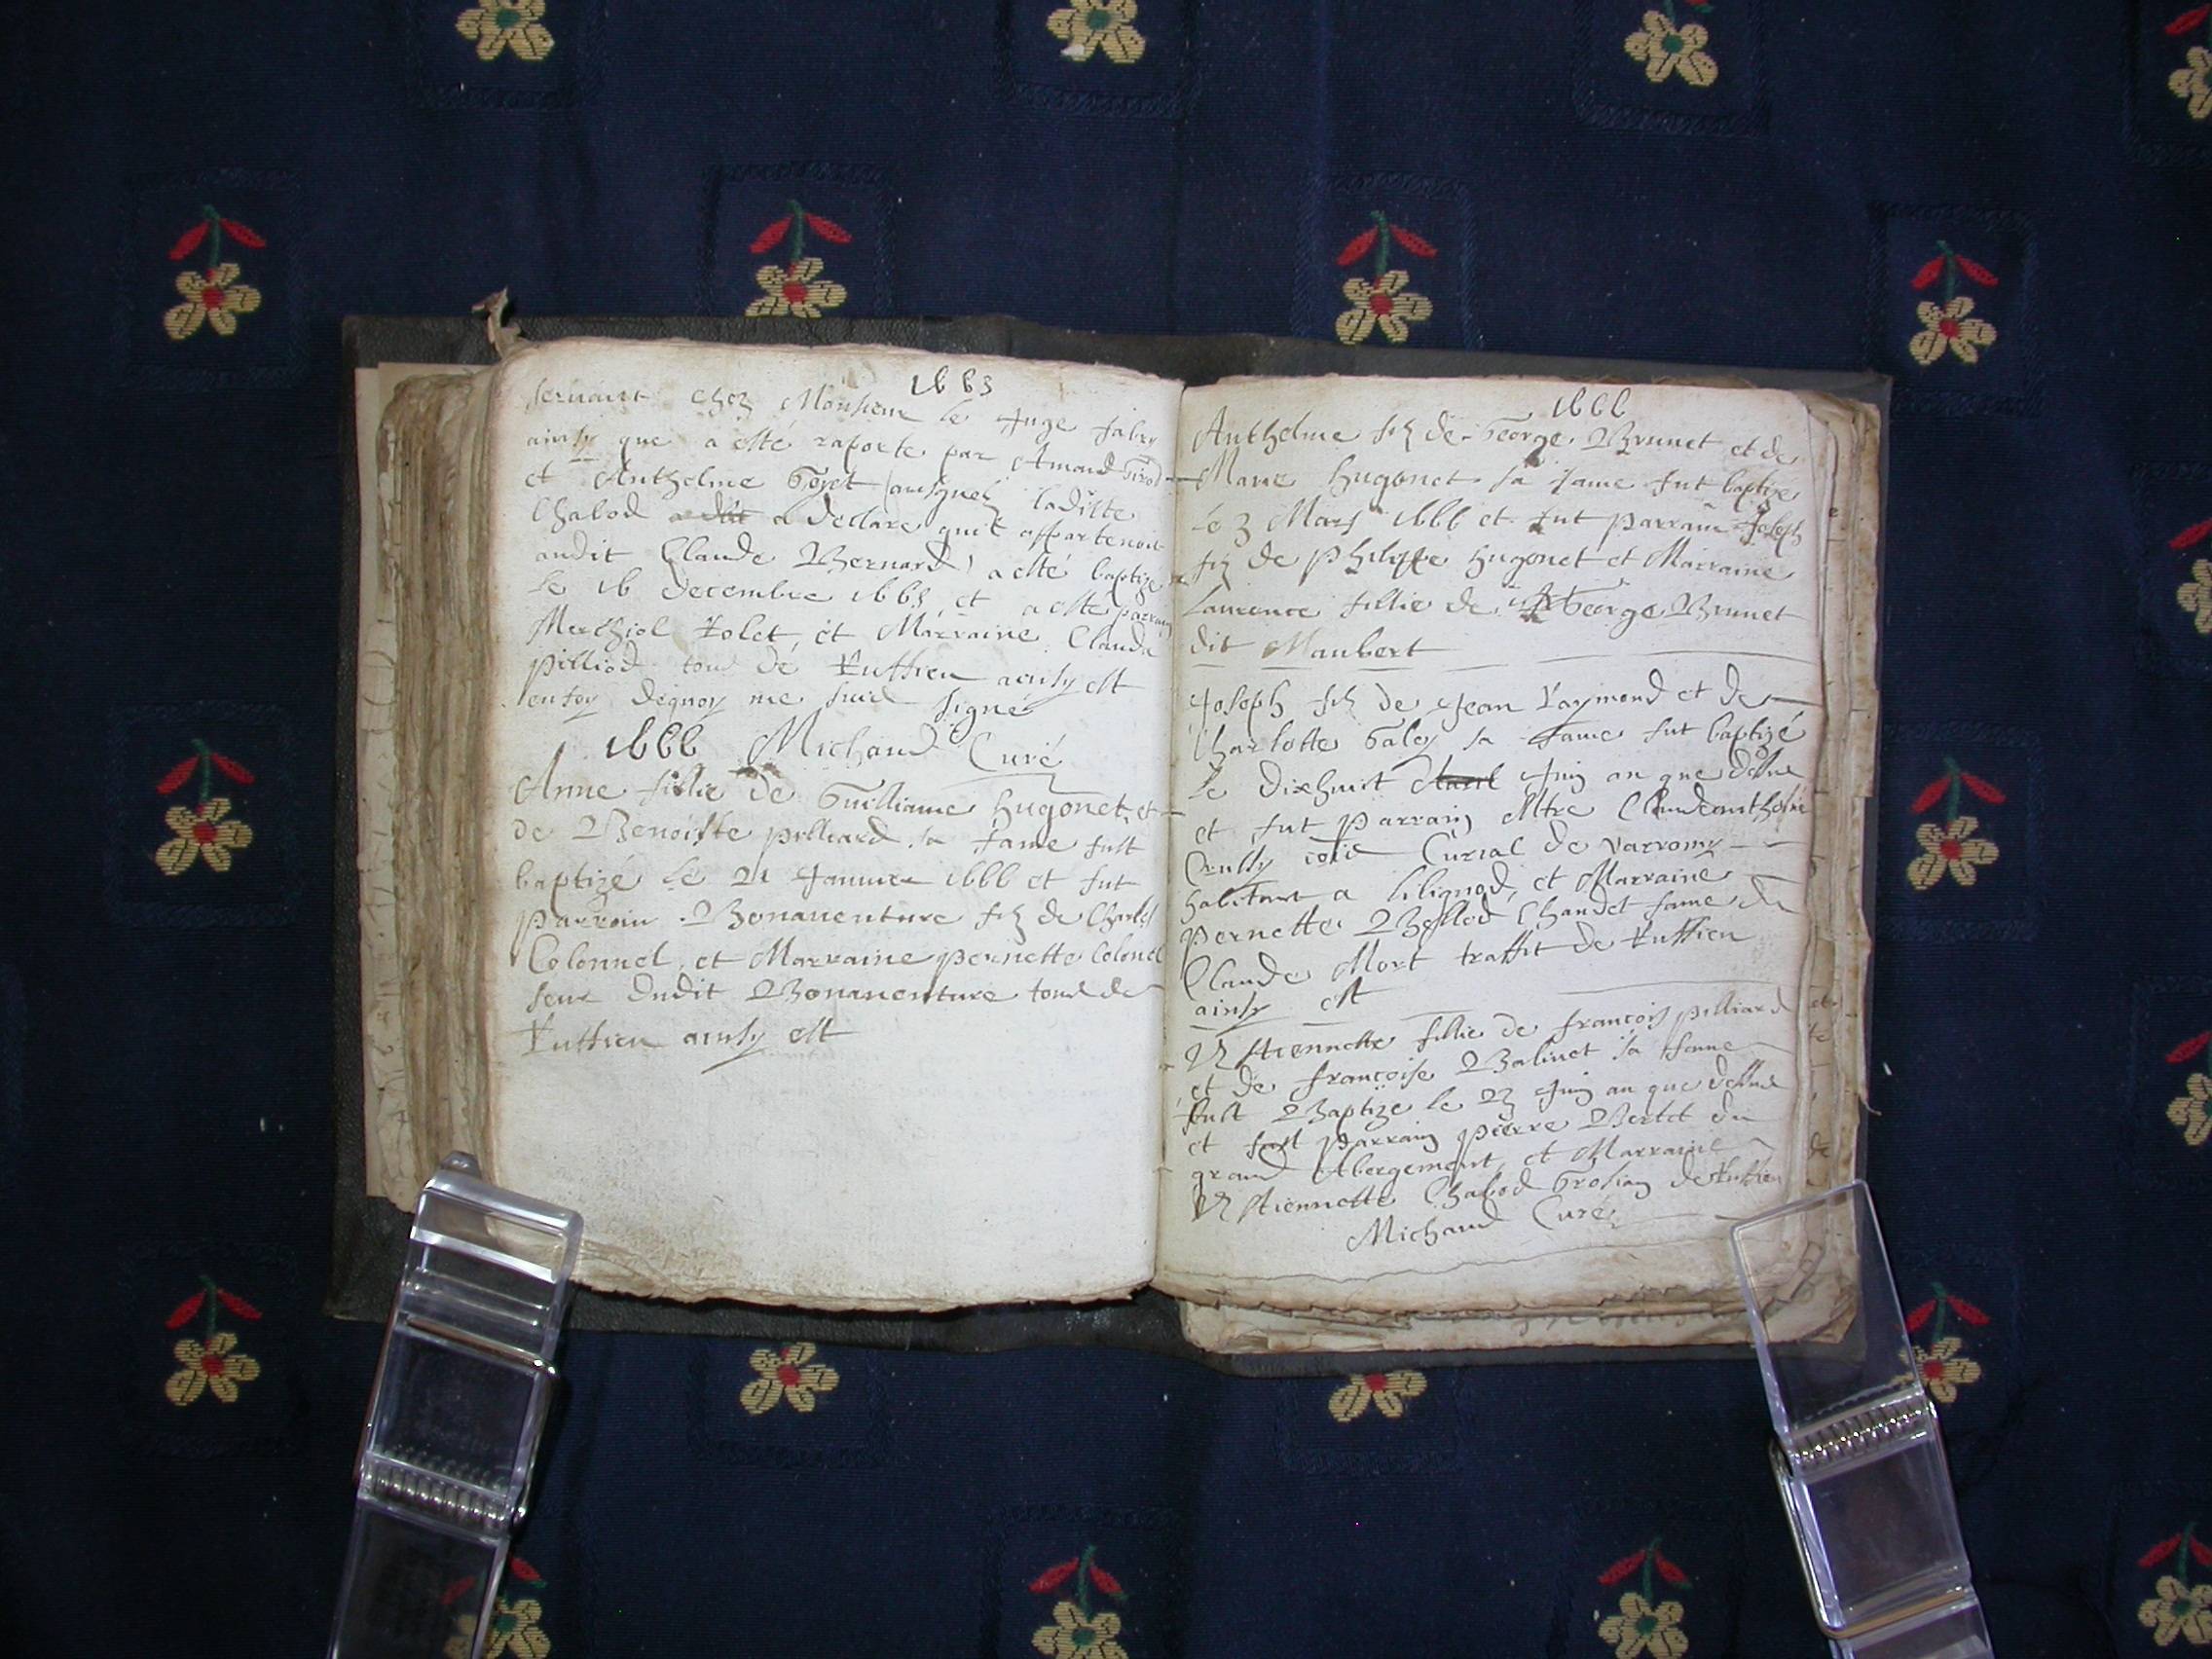 1665
servant chez Monsieur le Juge fabry
ainsy que a esté raporte par Amand Girod
et Anthelme Goyet (ausquels ladicte
Chabod a declare quil appartenoit
audit Claude Bernard) a esté baptize
le 16 decembre 1665 et a esté parrain
Merchiol Rolet et Marraine Clauda
pilliod tous de Ruffieu ainsy est
en foy dequoy me suis signé
1666 Michaud Curé
Anne fillie de Guilliame hugonet et
de Benoiste pilliard sa fame fust
baptizé le 21 Janvier 1666 et fut
parrain Bonaventure filz de Charles
Colonnel et Marraine pernette Colonel
seur dudit Bonaventure tous de
Ruffieu ainsy est
1666
Anthelme filz de George Brunet et de
Marie hugonet sa fame fut baptizé
le 3 Mars 1666 et fut parrain Joseph
filz de philippe hugonet et Marraine
Laurence fillie de George Brunet
dit Maubert
Joseph filz de Jean Raymond et de
Charlotte Galey sa fame fut baptizé
le dixhuit Juin an que dessus
et fut parrain Mtre Claude anthoine
Curial de Varromy
habitant a lilignod et Marraine
pernette Chaudet fame de
Claude Mort traffit de Ruffieu
ainsy est
Estiennette fillie de francois pilliard
et de francoise Balivet sa fame
fust Baptize le 23 Juin an que dessus
et fust parrain pierre Bertet du
grand Abergement et Marraine
Estiennette Chabod Grosian de Ruffieu
Michaud Curé